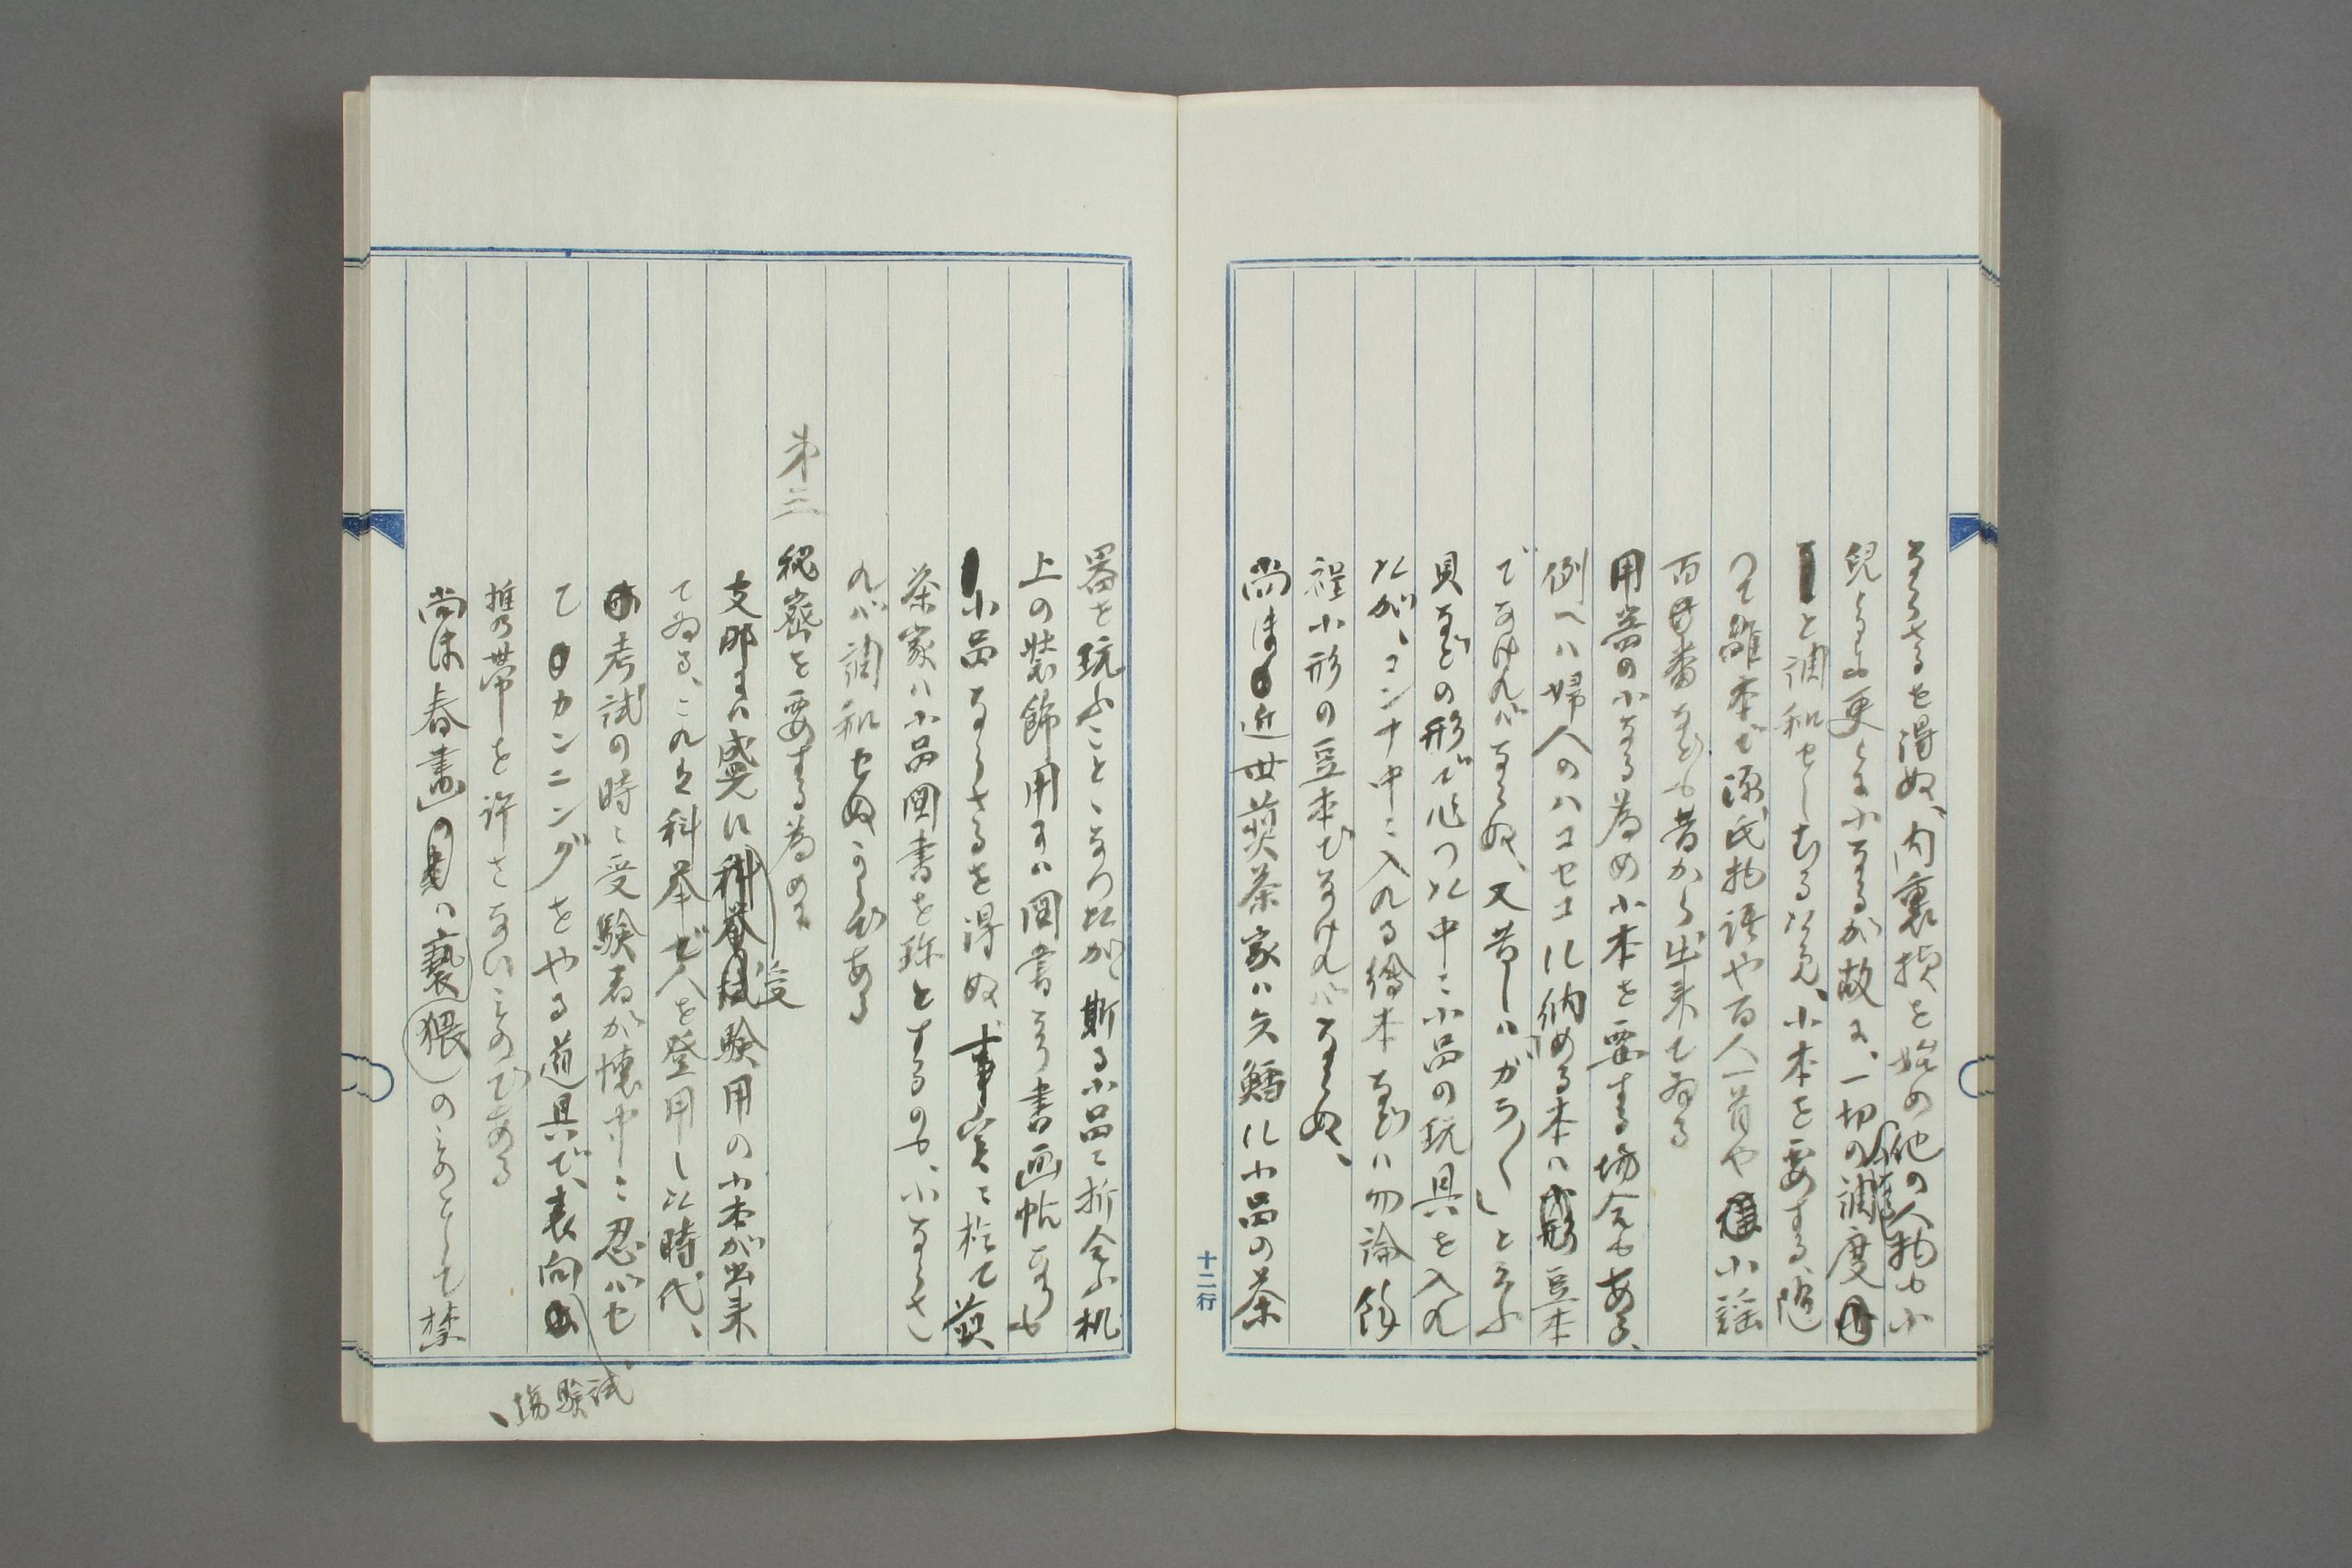 ならさるを得ぬ、内裏様を始め他の人物も小
児よりは更らに小なるが故に、一切の調度
と調和せしむる為、小本を要する、随
つて雛本ど源氏物語や百人一首や小謡
百番なども昔から出来てゐる
用器の小なる為め小本を要する場合もある、
例へハ婦人のハコセコに納める本ハ豆本
でなけれバならぬ、又昔しハガラ〱と云ふ
貝などの形で作つた中ニ小品の玩具を入れ
たが、コンナ中ニ入れる繪本などハ勿論餘
程小形の豆本でなけれバならぬ、
尚ほ近世煎茶家ハ矢鱈に小品の茶
十二行
器を玩ふことゝなつたが、斯る小品ニ折合ふ机
上の装飾用には図書なり書画帖なりも
小品ならさるを得ぬ、事実ニ於て煎
茶家ハ小品図書を珍とするのも、小ならさ
れバ調和せぬからである
第三 秘密を要する為めに
支那には盛んに受験用の小本が出来
てゐる、これは科挙で人を登用した時代、
考試の時ニ受験者が懐中ニ忍バせ
てカンニングをやる道具で、表向
試験場、
携帯を許さないものである
尚ほ春畫ハ猥褻のものとして禁